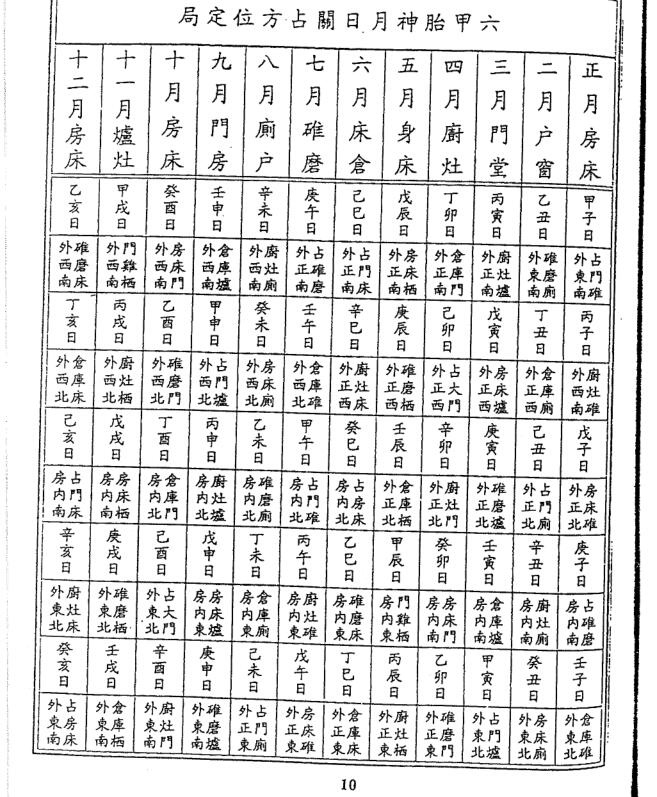 六甲胎神月日關占方位定局
正月房床
甲子日
占門碓
外東南
丙子日
廚灶碓
外西南
戊子日
房床碓
外正北
庚子日
占碓磨
房內南
壬子日
倉庫碓
外東北
二月户窗
乙丑日
碓磨廁
外東南
丁丑日
倉庫廁
外正西
己丑日
占門廁
外正北
辛丑日
廚灶廁
房內南
癸丑日
房床廁
外東北
三月門堂
丙寅日
廚灶爐
外正南
戊寅日
房床爐
外正西
庚寅日
碓磨爐
外正北
壬寅日
倉庫爐
房內南
甲寅日
占門爐
外東北
四月廚灶
丁卯日
倉庫門
外正南
己卯日
占大門
外正西
辛卯日
廚灶門
外正北
癸卯日
房床門
房內南
乙卯日
碓磨門
外正東
五月身床
戊辰日
房床栖
外正南
庚辰日
碓磨栖
外正西
壬辰日
倉庫栖
外正北
甲辰日
門雞栖
房內東
丙辰日
廚灶栖
外正東
六月床倉
己巳日
占門床
外正南
辛巳日
廚灶床
外正西
癸巳日
占房床
房內北
乙巳日
碓磨床
房內東
丁巳日
倉庫床
外正東
七月碓磨
庚午日
占碓磨
外正南
壬午日
倉庫碓
外西北
甲午日
占門碓
房內北
丙午日
廚灶碓
房內東
戊午日
房床碓
外正東
八月廁户
辛未日
廚灶廁
外西南
癸未日
房床廁
外西北
乙未日
碓磨廁
房內北
丁未日
倉庫廁
房內東
己未日
占門廁
外正東
九月門房
壬申日
倉庫爐
外西南
甲申日
占門爐
外西北
丙申日
廚灶爐
房內北
戊申日
房床爐
房內東
庚申日
碓磨爐
外東南
十月房床
癸酉日
房床門
外西南
乙酉日
碓磨門
外西北
丁酉日
倉庫門
房內北
己酉日
占大門
外東北
辛酉日
廚灶門
外東南
十一月爐灶
甲戌日
門雞栖
外西南
丙戌日
廚灶栖
外西北
戊戌日
房床栖
房內南
庚戌日
碓磨栖
外東北
壬戌日
倉庫栖
外東南
十二月房床
乙亥日
碓磨床
外西南
丁亥日
倉庫床
外西北
己亥日
占門床
房內南
辛亥日
廚灶床
外東北
癸亥日
占房床
外東南
10